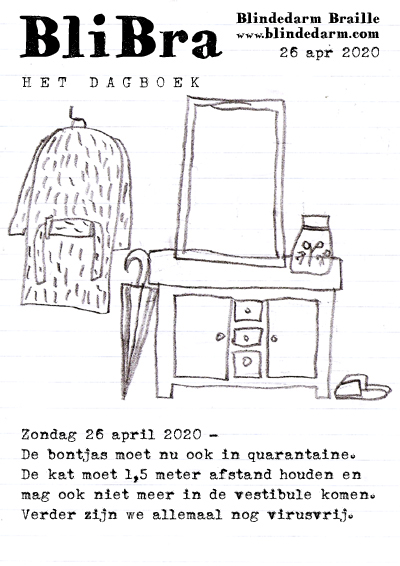 BliBra
HET DAGBOEK
Blindedarm Braille
www.blindedarm.com
26 apr 2020
Zondag 26 april 2020 –
De bontjas moet nu ook in quarantaine.
De kat moet 1,5 meter afstand houden en
mag ook niet meer in de vestibule komen.
Verder zijn we allemaal nog virusvrij.